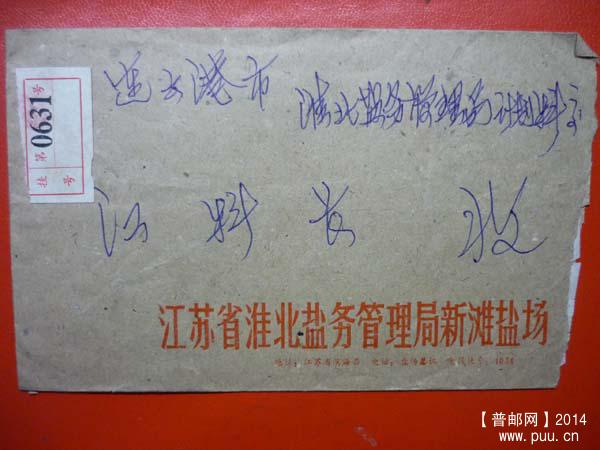 挂 第 0631 号
号
连云港市 淮北盐务管理局计划科
江科长 收
江苏省淮北盐务管理局新滩盐场
地址：江苏省滨海县 电话： 电报挂号：1034
【普邮网】2014
www.puu.cn